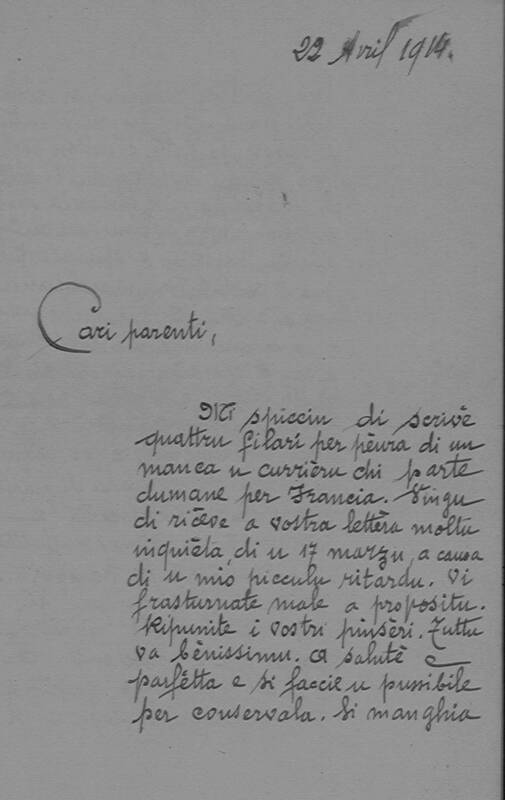 22 Avril 1914.
Cari parenti,
Mi spicciu di scrivè
quattru filari per pèura di un
manca u currièru chi parte
dumane per Francia. Vingu
di ricève a vostra lettèra moltu
inquièta, di u 17 marzu, a causa
di u mio picculu ritardu. Vi
frasturnate male a propositu.
Ripunite i vostri pinsèri. Tuttu
va bènissimu. A salutè è
parfètta e si faccie u pussibile
per conservala. Si manghia